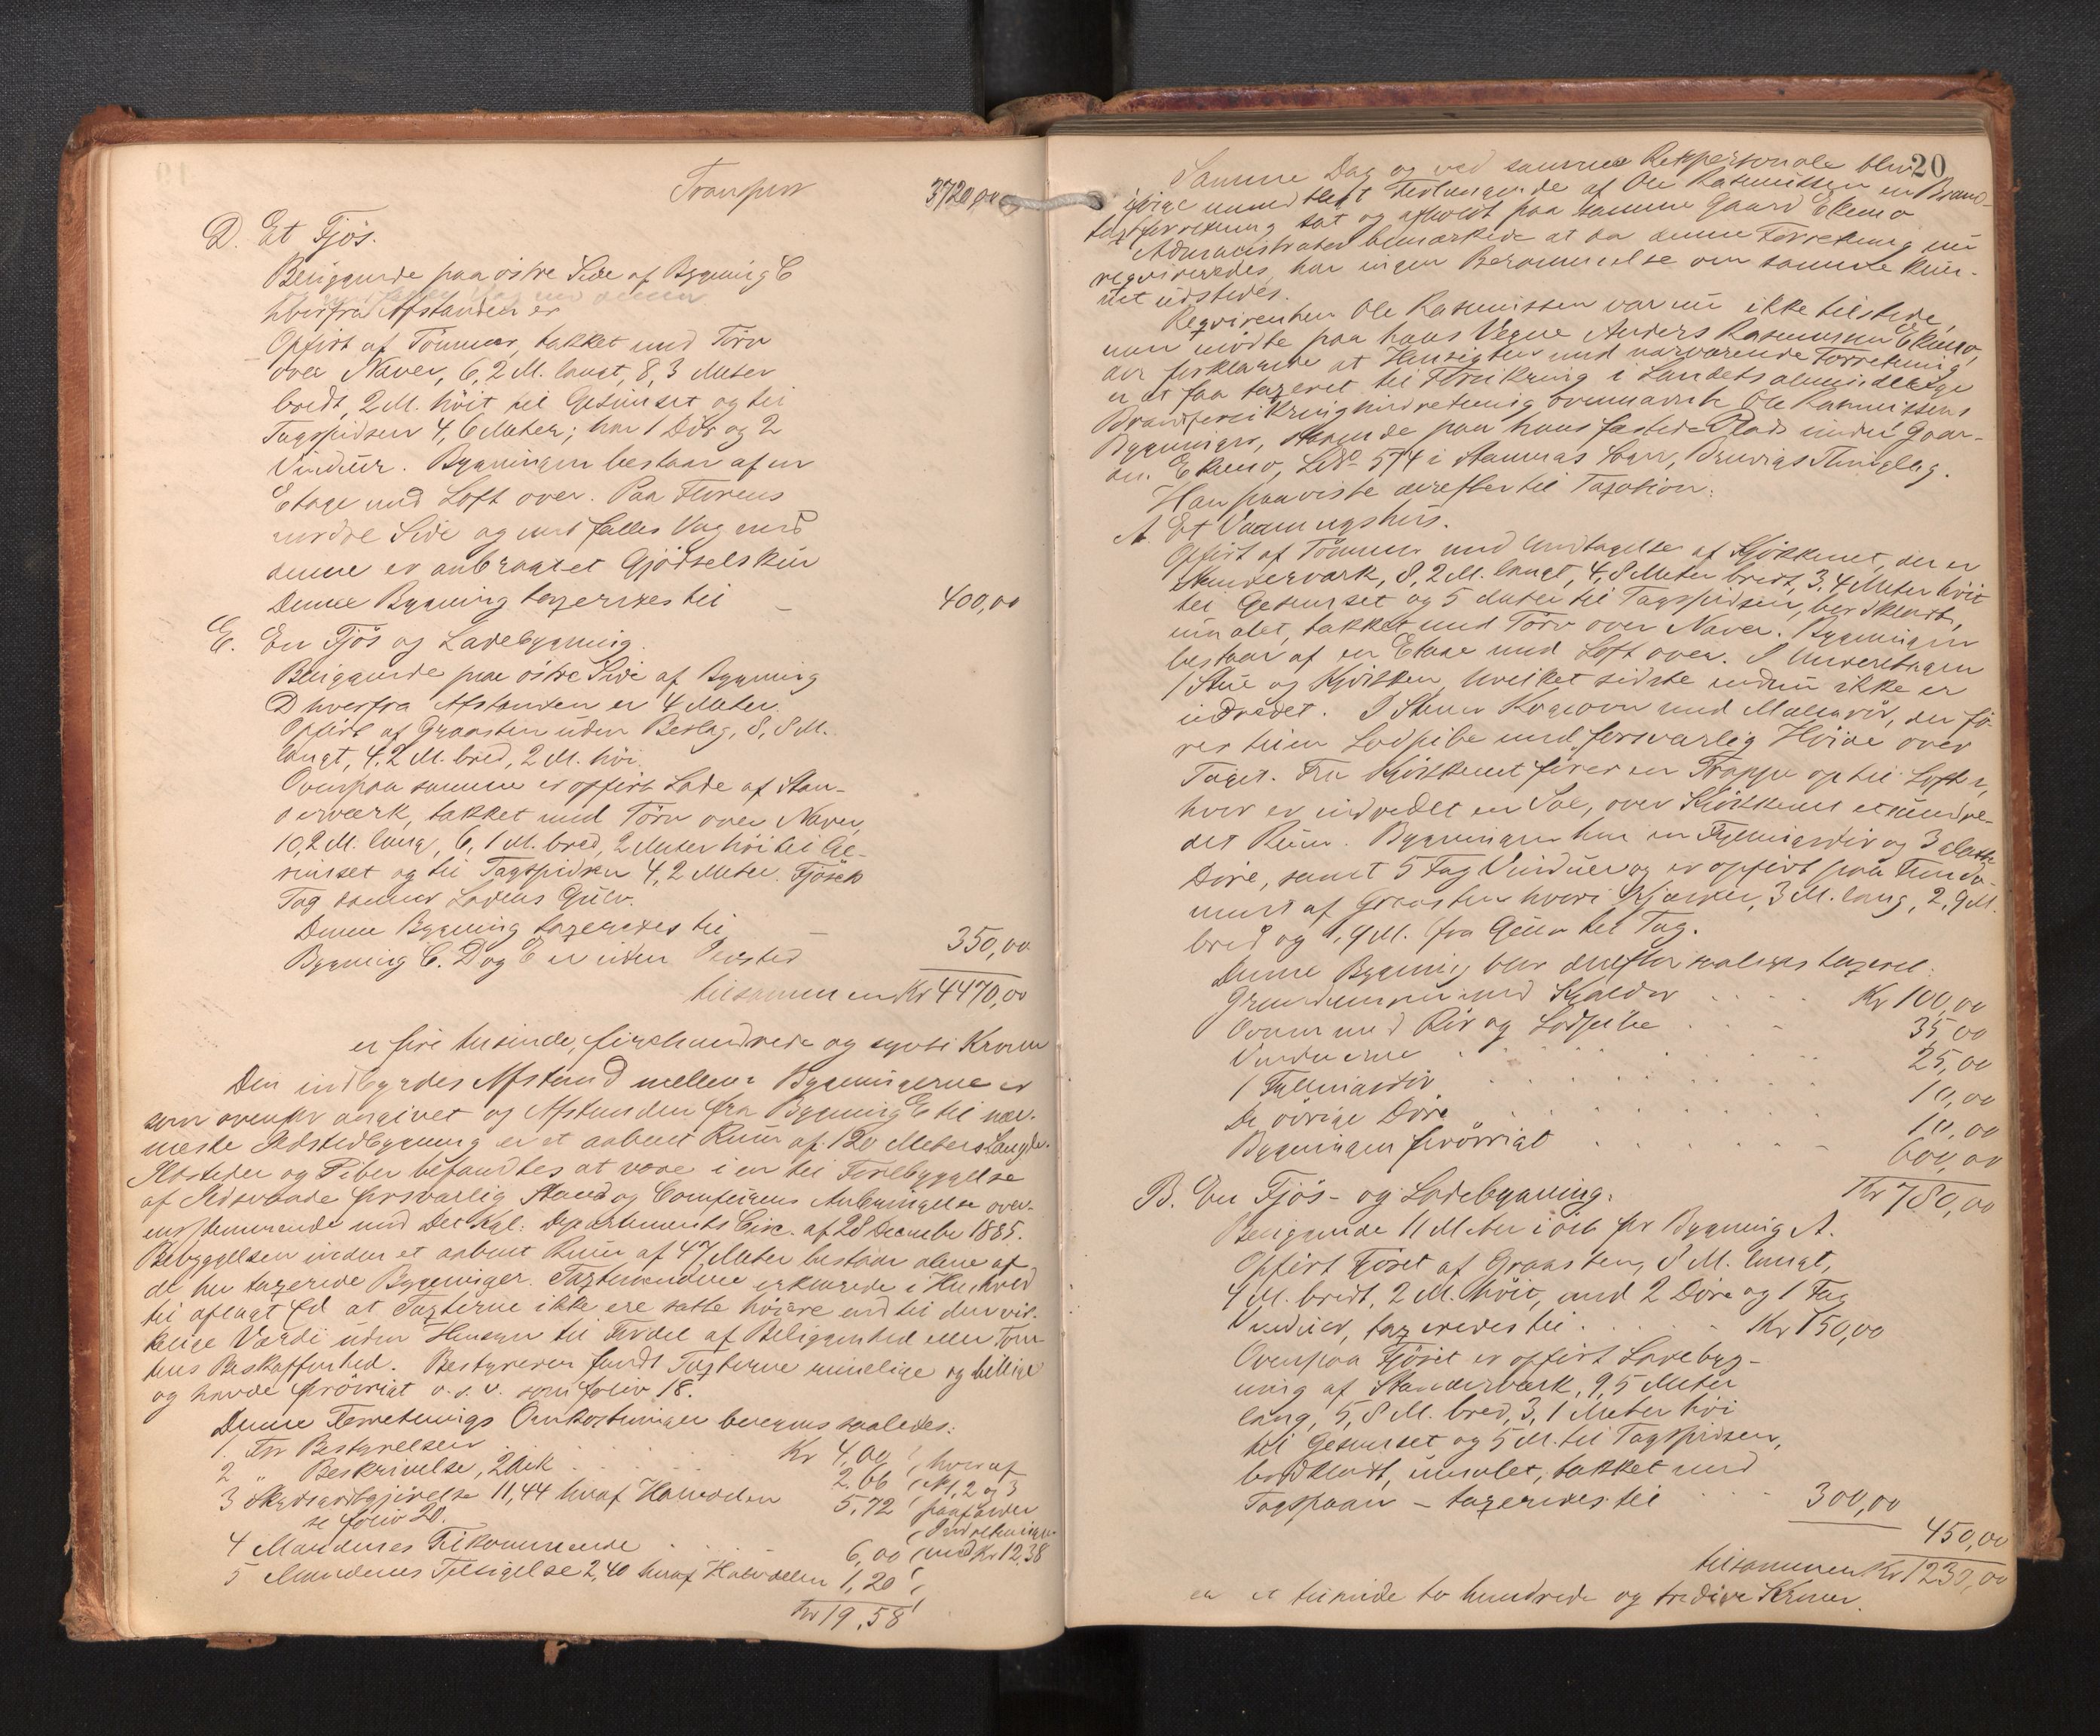 Transport 3720,00
D. Et Fjøs.
Beliggende paa østre Side af Bygning C
hvorfra Afstanden er
Opført af Tømmer, tækket med Törv
over Næver, 6,2 M. langt, 8,3 Meter
bredt, 2 M. höit til Gesimset og til
Tagspidsen 4,6 Meter; har 1 Dör og 2
Vinduer. Bygningen bestaar af en
Etage med Loft over. Paa Florens
nordre Side og med fælles Væg med
denne er anbragt et Gjödselskur
Denne Bygning taxeredes til — 400,00
E. En Fjös og Ladebygning.
Beliggende paa östre Side af Bygning
D hvorfra Afstanden er 4 Meter.
Opfört af Graasten uden Beslag, 8,8 M.
langt, 4,2 M. bred, 2 M. höi.
Ovenpaa samme er opfört Lade af Stan-
derværk, tækket med Törv over Næver,
10,2 M. lang, 6,1 M. bred, 2 Meter höi til Ge-
simset og til Tagspidsen 4,2 Meter. Fjösets
Tag danner Ladens Gulv.
Denne Bygning taxeredes til — 350,00
Bygning C. D og E er uden Ildsted
tilsammen Kr 4470,00
er fire tusinde, firehundrede og sytti Kroner
Den indbyrdes Afstand mellem Bygningerne er
som ovenfor angivet og Afstanden fra Bygning E til nær-
meste Ildstedbygning er et aabent Rum af 120 Meters Længde.
Ildsteder og Piber befandtes at være i en til Forebyggelse
af Ildsvaade forsvarlig Stand og Comfurens Anbringelse over-
ensstemmende med Det Kgl: Departements Circ. af 28 December 1885.
Bebyggelsen inden et aabent Rum af 47 Meter bestaar alene af
de her taxerede Bygninger. Taxtmændene erklærede i Henhold
til aflagt Ed at Taxterne ikke ere satte höiere end til den vir-
kelige Værdi uden Hensyn til Fordel af Beliggenhed eller Tom-
tens Beskaffenhed. Bestyreren fandt Taxterne rimelige og billige
og havde forövrigt o. s. v. som folio 18.
Denne Forretnings Omkostninger beregnes saaledes:
1. For Bestyrelsen Kr 4,00 hvoraf
2 " Beskrivelse, 2 Ark 2.66 No 1, 2 og 3
3 Skydsgodtgjörelse 11,44 hvoraf Halvdelen 5,72 paafører
se folio 20. Indretningen
4 Mændenes Tilkommende 6,00 med Kr 12,38
5 Mændenes Tilsigelse 2,40 hvoraf Halvdelen 1,20
Kr 19,58
20
Samme Dag og ved samme Retspersonale blev
ifölge mundtligt Forlangende af Ole Rasmussen en Brand-
taxtforretning sat og afholdt paa samme Gaard Ekemo
Administrator bemærkede at da denne Forretning nu
reqvireredes, har ingen Berammelse om samme kun-
net udstedes.
Reqvirenten Ole Rasmussen var nu ikke tilstede,
men mödte paa hans Vegne Anders Rasmussen Ekemo,
der forklarede at Hensigten med nærværende Forretning
er at faa taxeret til Forsikring i Landets almindelige
Brandforsikringsindretning ovennævnte Ole Rasmussens
Bygninger, staaende paa hans fæstede Plads under Gaar-
den Ekemo, LNo 574 i Hammers Sogn, Bruvigs Thinglag.
Han paaviste derefter til Taxation:
A. Et Vaaningshus.
Opfört af Tömmer med Undtagelse af Kjökkenet, der er
Standerværk, 8,2 M. langt, 4,8 Meter bredt, 3,4 Meter höit
til Gesimset og 5 Meter til Tagspidsen, bordklædt,
umalet, tækket med Törv over Næver. Bygningen
bestaar af en Etage med Loft over. I Underetagen
1 Stue og Kjökken, hvilket sidste endnu ikke er
indredet. I Stuen Kogeovn med Mallerör, der fö-
res til en Lodpibe med forsvarlig Höide over
Taget. Fra Kjökkenet förer en Trappe op til Loftet,
hvor er indredet en Sal, over Kjökkenet et uindre-
det Rum. Bygningen har en Fyldningsdör og 3 glatte
Döre, samt 5 Fag Vinduer og er opfört paa Funda-
ment af Graasten hvori Kjælder, 3 M. lang, 2,9 M.
bred og 1,9 M. fra Gulv til Tag.
Denne Bygning blev derefter saaledes taxeret:
Grundmuren med Kjælder . . . . Kr 100,00
Ovnen med Rör og Lodpibe . . . 35,00
Vinduerne . . . . . 25,00
1 Fyldningsdör . . . . 10,00
De övrige Döre . . . . 10,00
Bygningen forövrigt . . . . 600,00
Kr 780,00
B. En Fjös- og Ladebygning.
Beliggende 11 Meter i öst for Bygning A.
Opfört Fjöset af Graasten, 8 M. langt,
4 M. bredt, 2 M. höit, med 2 Döre og 1 Fag
Vinduer, taxeredes til . . . . Kr 150,00
Ovenpaa Fjöset er opfört Ladebyg-
ning af Standerværk, 9,5 Meter
lang, 5,8 M. bred, 3,1 Meter höi
til Gesimset og 5 M. til Tagspidsen,
bordklædt, umalet, tækket med
Tagspaan — taxeredes til . . . 300,00
450,00
tilsammen Kr 1230,00
er et tusinde to hundrede og tredive Kroner.